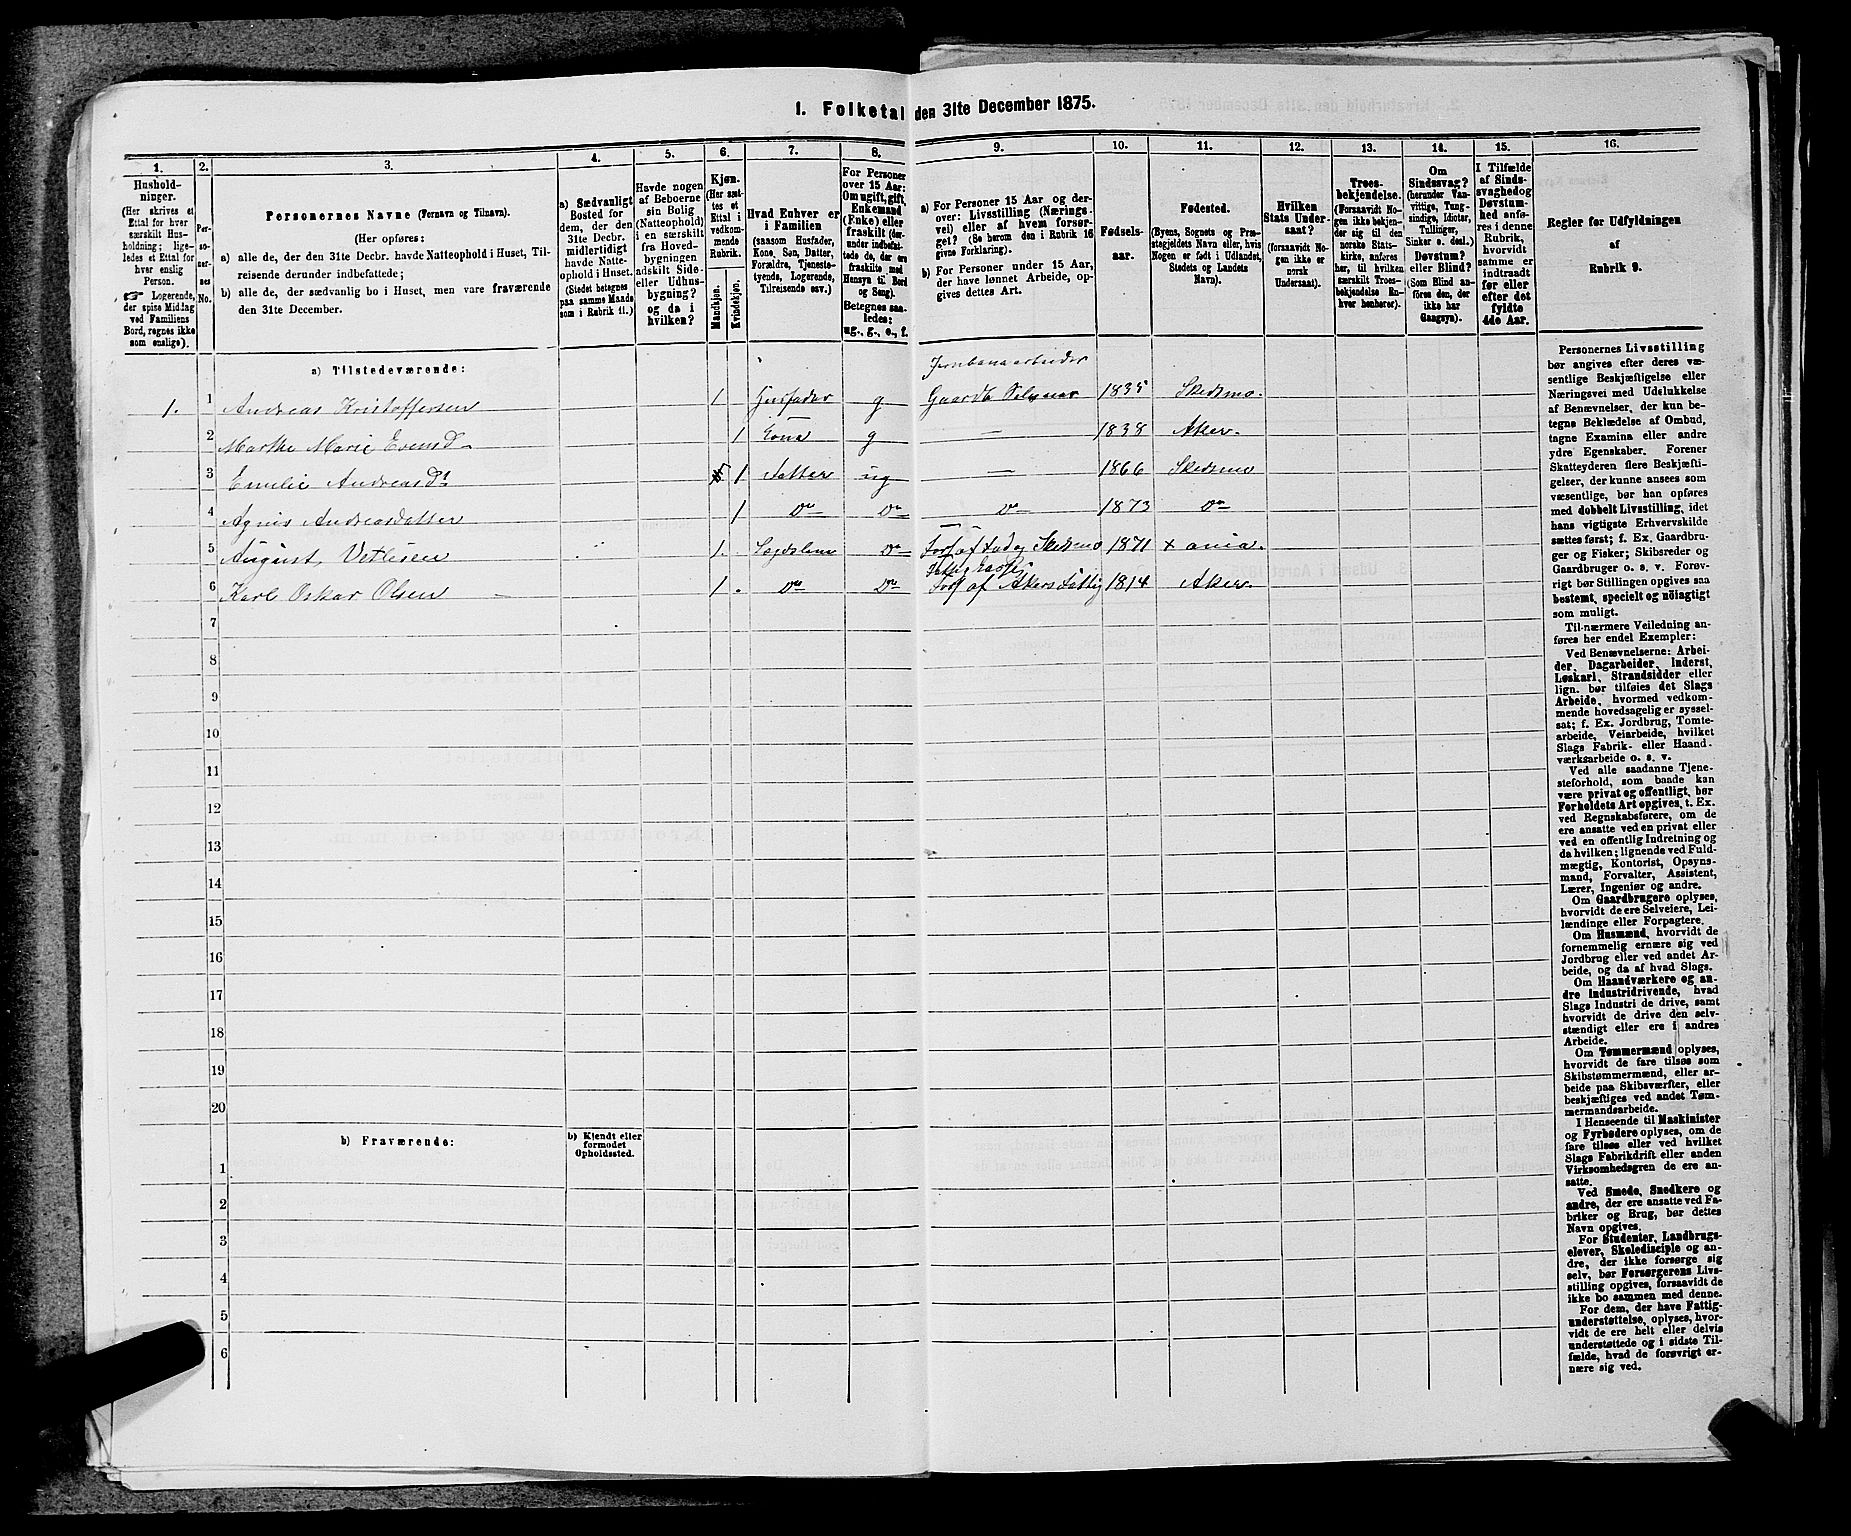 1. Folketal den 31te December 1875.
1. 2. 3. 4. 5. 6. 7. 8. 9. 10. 11. 12. 13. 14. 15. 16.
Hushold-
ninger.
(Her skrives et
Ettal for hver
særskilt Hus-
holdning; lige-
ledes et Ettal for
hver enslig
Person.
☞ Logerende,
der spise Middag
ved Familiens
Bord, regnes ikke
som enslige).
Per-
so-
ner-
nes
No.
Personernes Navne (Fornavn og Tilnavn).
(Her opføres:
a) alle de, der den 31te Decbr. havde Natteophold i Huset, Til-
reisende derunder indbefattede;
b) alle de, der sædvanlig bo i Huset, men vare fraværende
den 31te December.
a) Sædvanligt
Bosted for
dem, der den
31te Decbr.
midlertidigt
havde Natte-
ophold i Huset.
(Stedet betegnes
paa samme Maade
som i Rubrik 11.)
Havde nogen
af Beboerne
sin Bolig
(Natteophold)
i en særskilt
fra Hoved-
bygningen
adskilt Side-
eller Udhus-
bygning?
og da i
hvilken?
Kjøn.
(Her sæt-
tes et
Ettal i
vedkom-
mende
Rubrik.
Mandkjøn.
Kvindekjøn.
Hvad Enhver er
i Familien
(saasom Husfader,
Kone, Søn, Datter,
Forældre, Tjeneste-
tyende, Logerende,
Tilreisende osv.)
For Personer
over 15 Aar:
Om ugift, gift,
Enkemand
(Enke) eller
fraskilt (der-
under indbefat-
tede de, der ere
fraskilte med
Hensyn til Bord
og Seng).
Betegnes saa-
ledes:
ug., g., e., f.
a) For Personer 15 Aar og der-
over: Livsstilling (Nærings-
vei) eller af hvem forsør-
get? (Se herom den i Rubrik 16
givne Forklaring).
b) For Personer under 15 Aar,
der have lønnet Arbeide, op-
gives dettes Art.
Fødsels-
aar.
Fødested.
(Byens, Sognets og Præ-
stegjeldets Navn eller, hvis
Nogen er født i Udlandet,
Stedets og Landets
Navn).
Hvilken
Stats Under-
saat?
(forsaavidt No-
gen ikke er
norsk
Undersaat).
Troes-
bekjendelse.
(Forsaavidt No-
gen ikke bekjen-
der sig til den
norske Stats-
kirke, anføres
her, til hvilken
særskilt Troes-
bekjendelse En-
hver henhører).
Om
Sindssvag?
(herunder Van-
vittige, Tung-
sindige, Idioter,
Sinker o. desl.)
Døvstum?
eller Blind?
(Som Blind an-
føres den, der
ikke har
Gangsyn).
I Tilfælde
af Sinds-
svaghed og
Døvstum-
hed anfø-
res i denne
Rubrik,
hvorvidt
samme er
indtraadt
før eller
efter det
fyldte
4de Aar.
Regler for Udfyldningen
af
Rubrik 9.
a) Tilstedeværende:
Jernbanearbeider
1. 1 Andreas Kristoffersen 1 Husfader g Gaardb. Selveier 1835 Skedsmo.
2 Marthe Marie Evensd 1 Kone g — 1838 Aker.
3 Emilie Andreasdr 1 Datter ug — 1866 Skedsmo
4 Agnis Andreasdatter 1 Do Do Do 1873 Do
5 August Vetlesen 1. Do 1871 Xania.
6 Karl Oskar Olsen 1 Do Do Fors af Akers Fattig 1814 Aker.
7
8
9
10
11
12
13
14
15
16
17
18
19
20
b) Fraværende:
b) Kjendt eller
formodet
Opholdssted.
1
2
3
4
5
6
Personernes Livsstilling
bør angives efter deres væ-
sentlige Beskjæftigelse eller
Næringsvei med Udelukkelse
af Benævnelser, der kun be-
tegne Beklædelse af Ombud,
tagne Examina eller andre
ydre Egenskaber. Forener
Skatteyderen flere Beskjæfti-
gelser, der kunne ansees som
væsentlige, bør han opføres
med dobbelt Livsstilling, idet
hans vigtigste Erhvervskilde
sættes først; f. Ex. Gaardbru-
ger og Fisker; Skibsreder og
Gaardbruger o. s. v. Forøv-
rigt bør Stillingen opgives saa
bestemt, specielt og nøiagtigt
som muligt.
Til nærmere Veiledning an-
føres her endel Exempler:
Ved Benævnelserne: Arbei-
der, Dagarbeider, Inderst,
Løskarl, Strandsidder eller
lign. bør tilføies det Slags
Arbeide, hvormed vedkom-
mende hovedsagelig er syssel-
sat; f. Ex. Jordbrug, Tomte-
arbeide, Veiarbeide, hvilket
Slags Fabrik- eller Haand-
værksarbeide o. s. v.
Ved alle saadanne Tjene-
steforhold, som baade kan
være privat og offentligt, bør
Forholdets Art opgives, t. Ex.
ved Regnskabsførere, om de
ere ansatte ved en privat eller
ved en offentlig Indretning og
da hvilken; lignende ved Fuld-
mægtig, Kontorist, Opsyns-
mand, Forvalter, Assistent,
Lærer, Ingeniør og andre.
Om Gaardbrugere oplyses,
hvorvidt de ere Selveiere, Lei-
lændinge eller Forpagtere.
Om Husmænd, hvorvidt de
fornemmelig ernære sig ved
Jordbrug eller ved andet Ar-
beide, og da af hvad Slags.
Om Haandværkere og an-
dre Industridrivende, hvad
Slags Industri de drive, samt
hvorvidt de drive den selv-
stændigt eller ere i andres
Arbeide.
Om Tømmermænd oplyses,
hvorvidt de fare tilsøs som
Skibstømmermænd, eller ar-
beide paa Skibsværfter, eller
beskjæftiges ved andet Tøm-
mermandsarbeide.
I Henseende til Maskinister
og Fyrbødere oplyses, om de
fare tilsøs eller ved hvilket
Slags Fabrikdrift eller anden
Virksomhedsgren de ere an-
satte.
Ved Smede, Snedkere og
andre, der ere ansatte ved Fa-
briker og Brug, bør dettes
Navn opgives.
For Studenter, Landbrugs-
elever, Skoledisciple og an-
dre, der ikke forsørge sig
selv, bør Forsørgerens Livs-
stilling opgives, forsaavidt de
ikke bo sammen med denne.
For dem, der have Fattig-
understøttelse, oplyses, hvor-
vidt de ere helt eller delvis
understøttede og i sidste Til-
fælde, hvad de forøvrigt er-
nære sig ved.